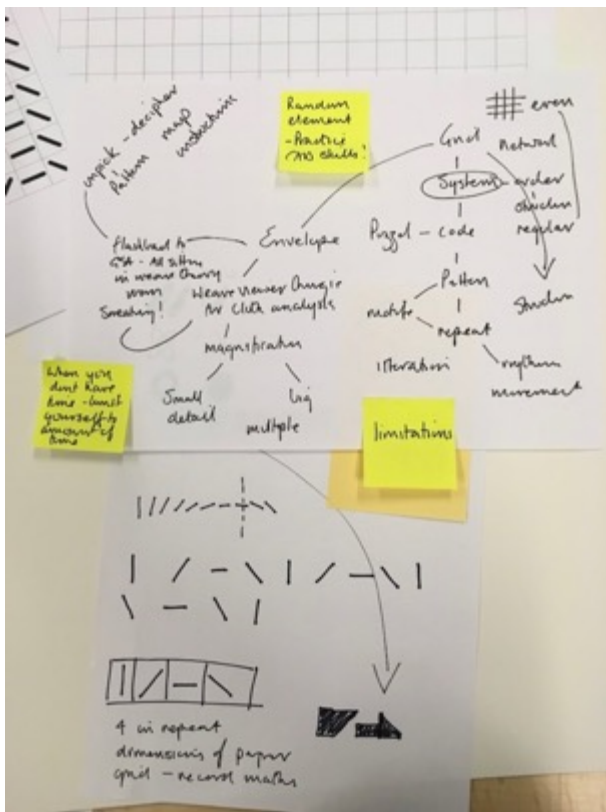 unpick - decipher
Pattern maps
instructions
Random
element
- Practice
skills!
even
Grid network
System - order
structure
regular
Puzzel - code
Pattern
motif
repeat
Structure
iteration
rhythm
movement
flashback to
GSA - All sitting
in weave theory
room
Sneaking!
Envelope
Weave viewer
for cloth analysis
magnification
Small
detail
big
multiple
When you
dont have
time - limit
yourself to
amount of
time
limitations
4 in repeat
dimensions of paper
grid - record maths